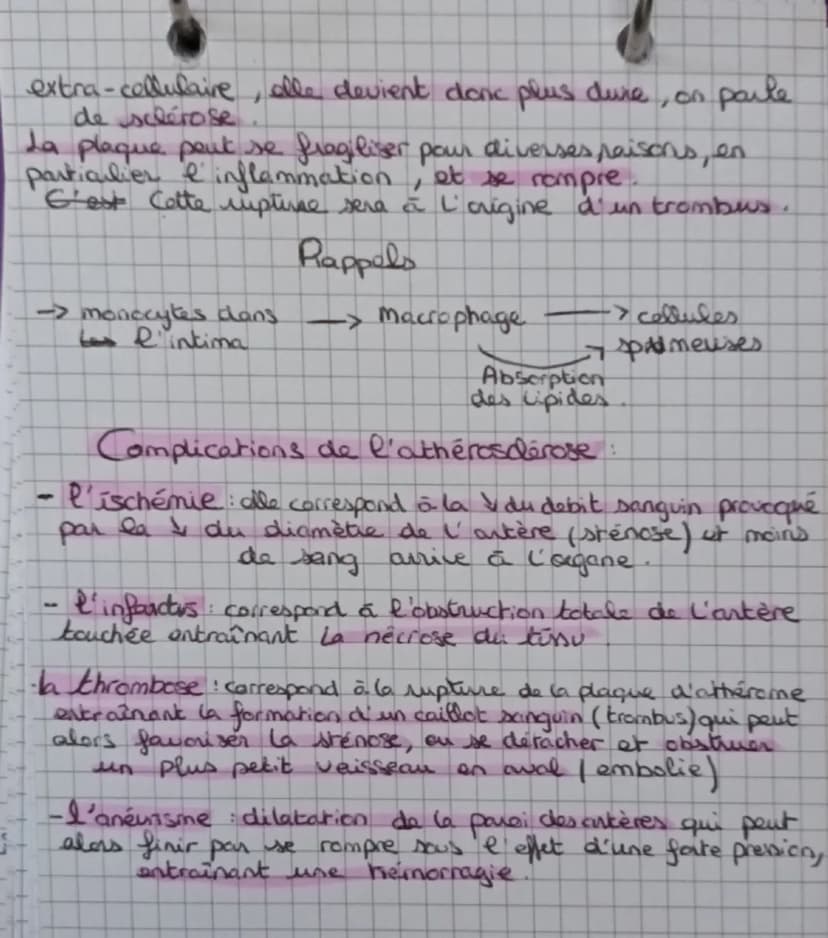 extra-cellulaire, elle devient donc plus dure, on parle
de sclérose.
La plaque peut se fragiliser pour diverses raisons, en
particulier l'inflammation, et se rompre.
C'est Cette rupture sera à l'origine d'un trombus.
Rappels
→ monocytes dans → macrophage → cellules
l'intima spumeuses
Absorption
des lipides.
Complications de l'athérosclérose :
- l'ischémie : elle correspond à la ↓ du debit sanguin provoqué
par la ↓ du diamètre de l'artère (sténose) et moins
de sang arrive à l'organe.
- l'infarctus : correspond à l'obstruction totale de l'artère
touchée entraînant la nécrose du tissu
- la thrombose : correspond à la rupture de la plaque d'athérome
entraînant la formation d'un caillot sanguin (trombus) qui peut
alors favoriser la sténose, ou se détacher et obstruer
un plus petit vaisseau en aval (embolie)
- l'anévrisme : dilatation de la paroi des artères qui peut
alors finir par se rompre sous l'effet d'une forte pression,
entraînant une hémorragie.